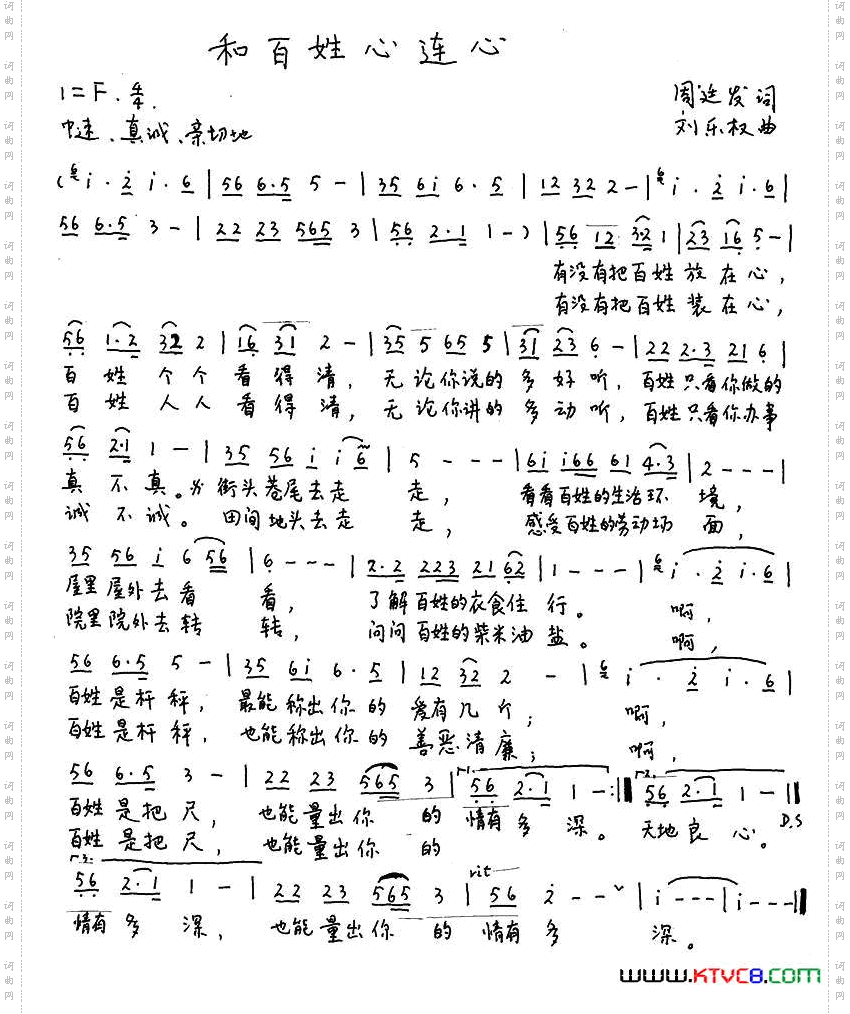 和百姓心连心
1=F. 4/4.
周延发词
中速、真诚、亲切地
刘乐权曲
(6 i . 2 i . 6 | 56 6.5 5 - | 35 6i 6.5 | 12 32 2 - | 6 i . 2 i . 6 |
56 6.5 3 - | 22 23 565 3 | 56 2.1 1 - ) | 56 12 32 1 | 23 16 5 - |
有没有把百姓放在心,
有没有把百姓装在心,
56 1.2 32 2 | 16 31 2 - | 35 5 65 5 | 31 23 6 - | 22 2.3 21 6 |
百姓个个看得清, 无论你说的多好听, 百姓只看你做的
百姓人人看得清, 无论你讲的多动听, 百姓只看你办事
56 2.1 1 - | 35 56 i i 6 | 5 - - - | 6i i66 61 4.3 | 2 - - - |
真不真。 街头巷尾去走走, 看看百姓的生活环境,
诚不诚。 田间地头去走走, 感受百姓的劳动场面,
35 56 i 6 56 | 6 - - - | 2.2 223 21 62 | 1 - - - | 6 i . 2 i . 6 |
屋里屋外去看看, 了解百姓的衣食住行。 啊,
院里院外去转转, 问问百姓的柴米油盐。 啊,
56 6.5 5 - | 35 6i 6.5 | 12 32 2 - | 6 i . 2 i . 6 |
百姓是杆秤, 最能称出你的爱有几个; 啊,
百姓是杆秤, 也能称出你的善恶清廉; 啊,
56 6.5 3 - | 22 23 565 3 | 1. 56 2.1 1 - :| 2. 56 2.1 1 - | D.S
百姓是把尺, 也能量出你的情有多深。 天地良心。
百姓是把尺, 也能量出你的
3. 56 2.1 1 - | 22 23 565 3 | rit 56 2 - - | i - - - | i - - - |
情有多深, 也能量出你的情有多深。
www.KTVC8.com
词曲网